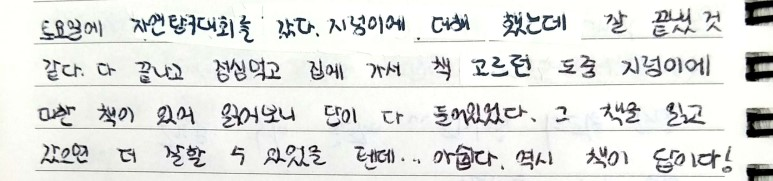 토요일에 자연탐구대회를 갔다. 지렁이에 대해 했는데 잘 끝났 것
같다. 다 끝나고 점심먹고 집에 가서 책 고르런 도중 지렁이에
대한 책이 있어 읽어보니 답이 다 들어있었다. 그 책을 읽고
갔으면 더 잘할 수 있었을 텐데... 아쉽다. 역시 책이 답이다!